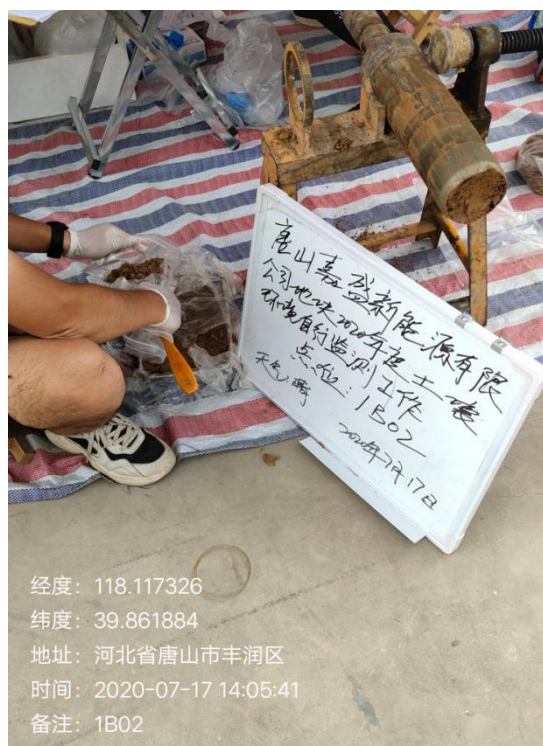 唐山嘉盛新能源有限
公司地块2020年度土壤
环境自行监测工作
点位：1B02
天气：晴
2020年7月17日
经度：118.117326
纬度：39.861884
地址：河北省唐山市丰润区
时间：2020-07-17 14:05:41
备注：1B02